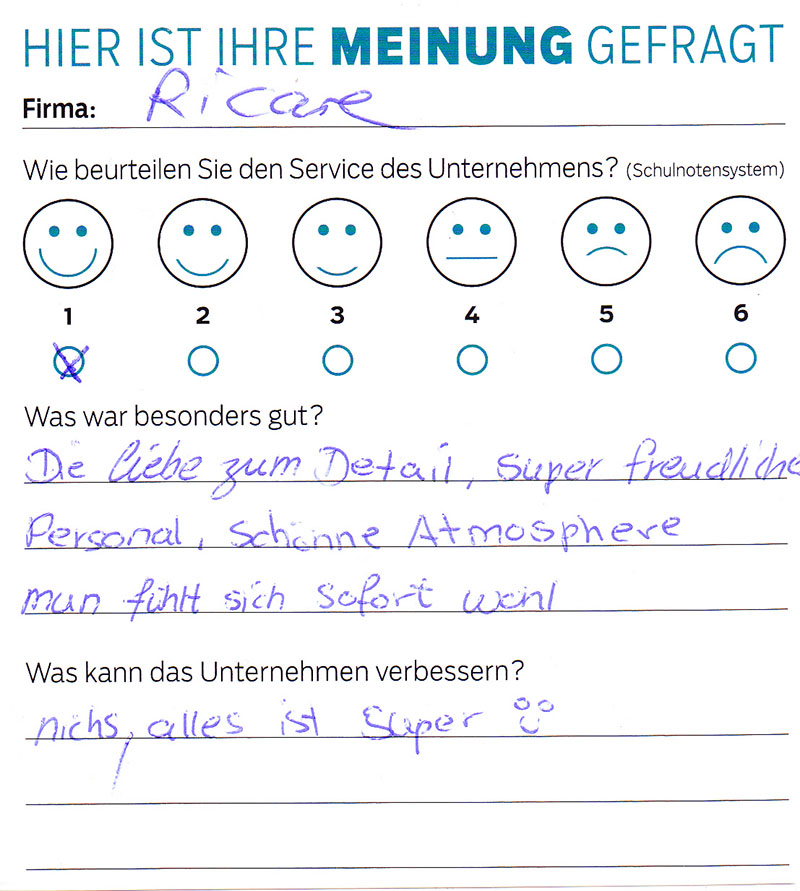 HIER IST IHRE MEINUNG GEFRAGT
Firma: Ricare
Wie beurteilen Sie den Service des Unternehmens? (Schulnotensystem)
1 2 3 4 5 6
Was war besonders gut?
Die liebe zum Detail, super freudliche
Personal, Schönne Atmosphere
man fühlt sich sofort wohl
Was kann das Unternehmen verbessern?
nichs, alles ist Super